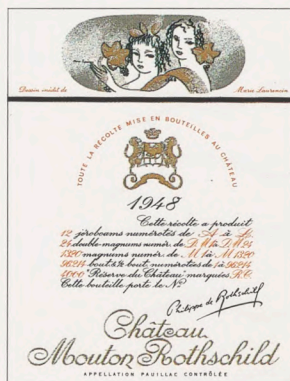 Dessin inédit de Marie Laurencin
TOUTE LA RÉCOLTE MISE EN BOUTEILLES AU CHÂTEAU
1948
Cette récolte a produit
12 jéroboams numérotés de A à L
24 double-magnums numér. de D.M. 1 à D.M 24
1320 magnums numér. de M 1 à M 1320
96214 bout. & ½ bout. numérotées de 1 à 96214
4000 "Réserve du Château" marquées R.C.
Cette bouteille porte le Nº
Philippe de Rothschild
Château
Mouton Rothschild
APPELLATION PAUILLAC CONTRÔLÉE